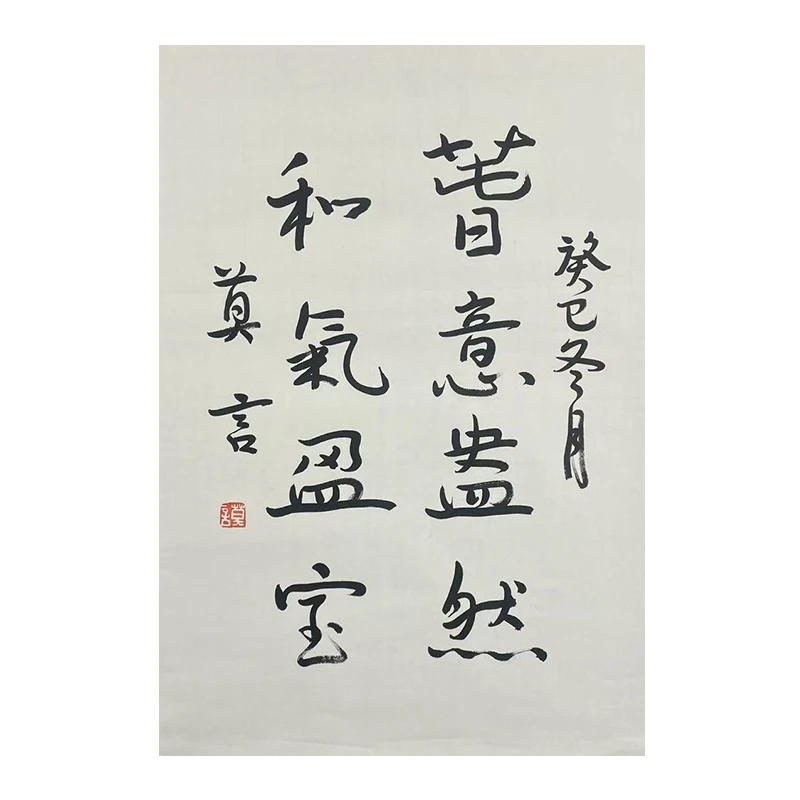 癸巳冬月
萅意盎然
和氣盈室
莫言
莫言